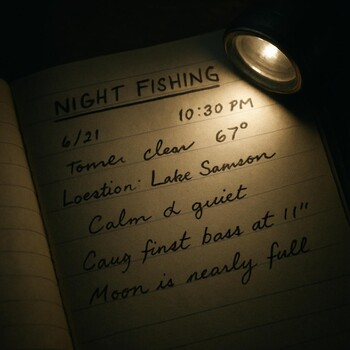 NIGHT FISHING
6/21 10:30 PM
clear 67°
Locstion: Lake Samson
Calm & quiet
Caug finst bass at 11"
Moon is nearly full